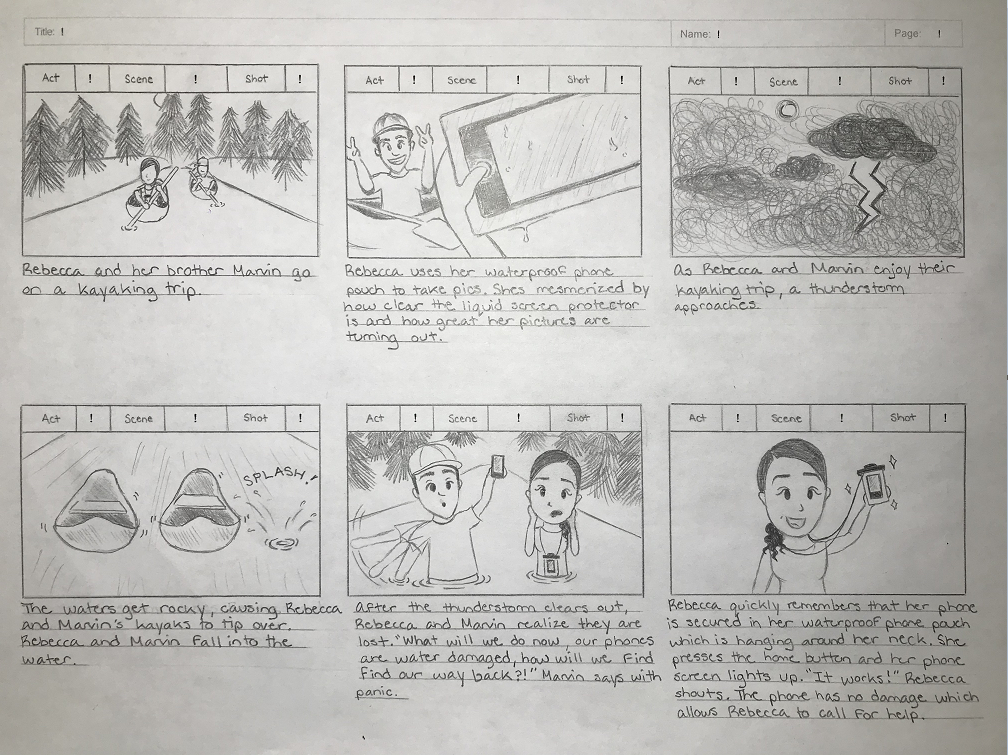 Title: !
Name: !
Page: !
Act ! Scene ! Shot !
Rebecca and her brother Marvin go
on a kayaking trip.
Act ! Scene ! Shot !
Rebecca uses her waterproof phone
pouch to take pics. Shes mesmerized by
how clear the liquid screen protector
is and how great her pictures are
turning out.
Act ! Scene ! Shot !
As Rebecca and Marvin enjoy their
kayaking trip, a thunderstorm
approaches.
Act ! Scene ! Shot !
SPLASH!
The waters get rocky, causing Rebecca
and Marvin's kayaks to tip over.
Rebecca and Marvin fall into the
water.
Act ! Scene ! Shot !
After the thunderstorm clears out,
Rebecca and Marvin realize they are
lost. "What will we do now, our phones
are water damaged, how will we find
find our way back?!" Marvin says with
panic.
Act ! Scene ! Shot !
Rebecca quickly remembers that her phone
is secured in her waterproof phone pouch
which is hanging around her neck. She
presses the home button and her phone
screen lights up. "It works!" Rebecca
shouts. The phone has no damage which
allows Rebecca to call for help.